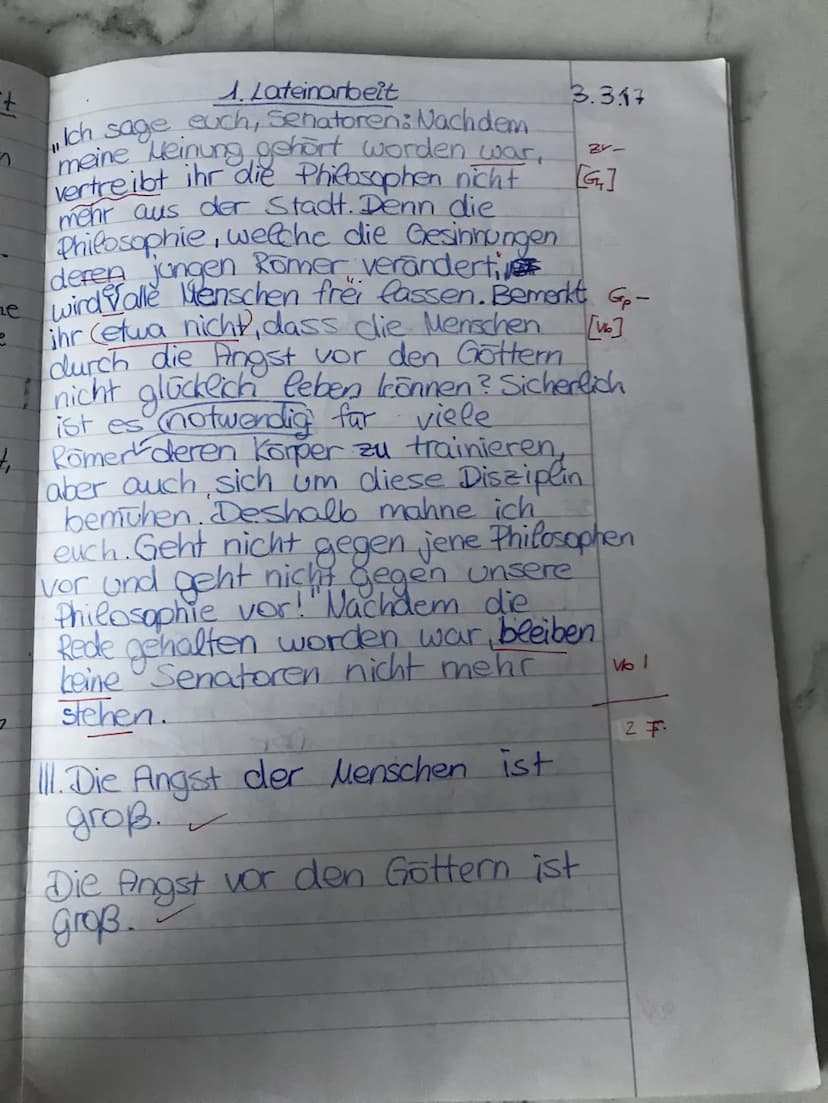 1. Lateinarbeit 3.3.17
„Ich sage euch, Senatoren: Nachdem
meine Meinung gehört worden war, zv-
vertreibt ihr die Philosophen nicht
mehr aus der Stadt. Denn die
Philosophie, welche die Gesinnungen
deren jungen Römer verändert,
wird alle Menschen frei lassen. Bemerkt Gp-
ihr (etwa nicht), dass die Menschen [Vb]
durch die Angst vor den Göttern
nicht glücklich leeben können? Sicherlich
ist es notwendig für viele
Römer deren Körper zu trainieren,
aber auch sich um diese Disziplin
bemühen. Deshalb mahne ich
euch. Geht nicht gegen jene Philosophen
vor und geht nicht gegen unsere
Philosophie vor!" Nachdem die
Rede gehalten worden war, bleiben
keine Senatoren nicht mehr Vb!
stehen.
2 F.
III. Die Angst der Menschen ist
groß.
Die Angst vor den Göttern ist
groß.